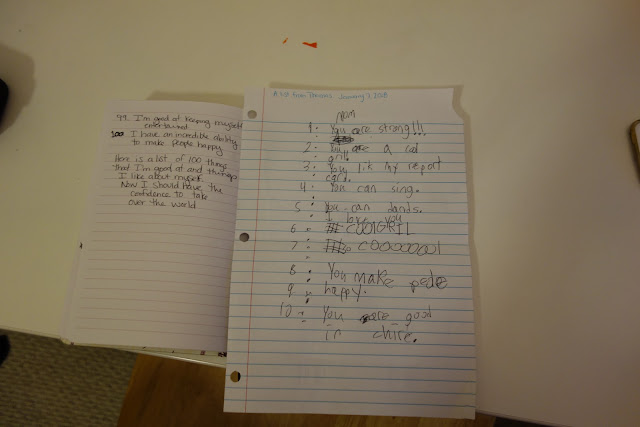 99. I'm good at keeping myself
entertained.
100 I have an incredible ability
to make people happy
Here is a list of 100 things
that I'm good at and things
I like about myself.
Now I should have the
confidence to take
over the world
A list from Thomas January 7, 2018
mom
1. You are strong!!!
2. You are a col
gril
3. You lik my repot
card.
4. You can sing.
5. You can dands.
I love you
6. #COOlGRIL
7. # COOOOOOOl
8. You make peple
9. happy.
10. You are good
in chire.